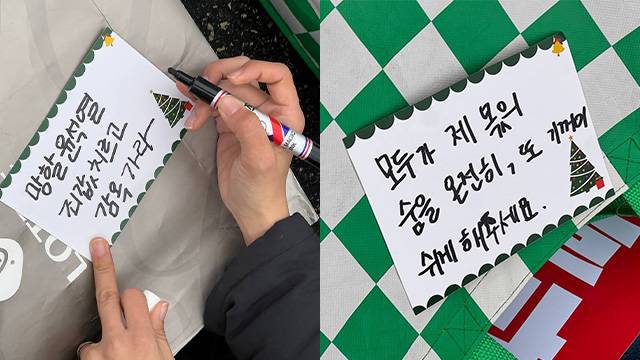 망할 윤석열
죄값 치르고
감옥 가라
모두가 제 몫의
숨을 온전히, 또 기꺼이
쉬게 해주세요.